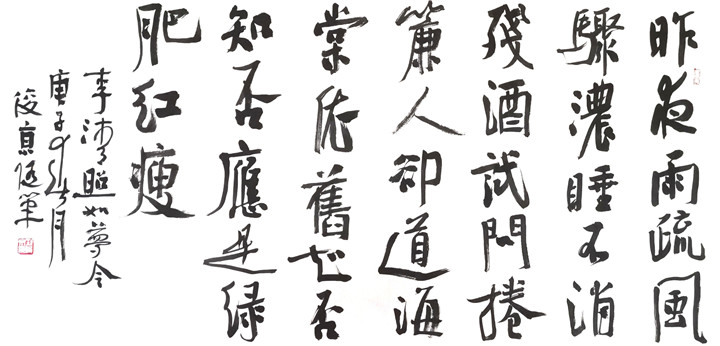 昨夜雨疏風
驟濃睡不消
殘酒試問捲
簾人卻道海
棠依舊知否
知否應是綠
肥紅瘦
李清照如夢令
庚子